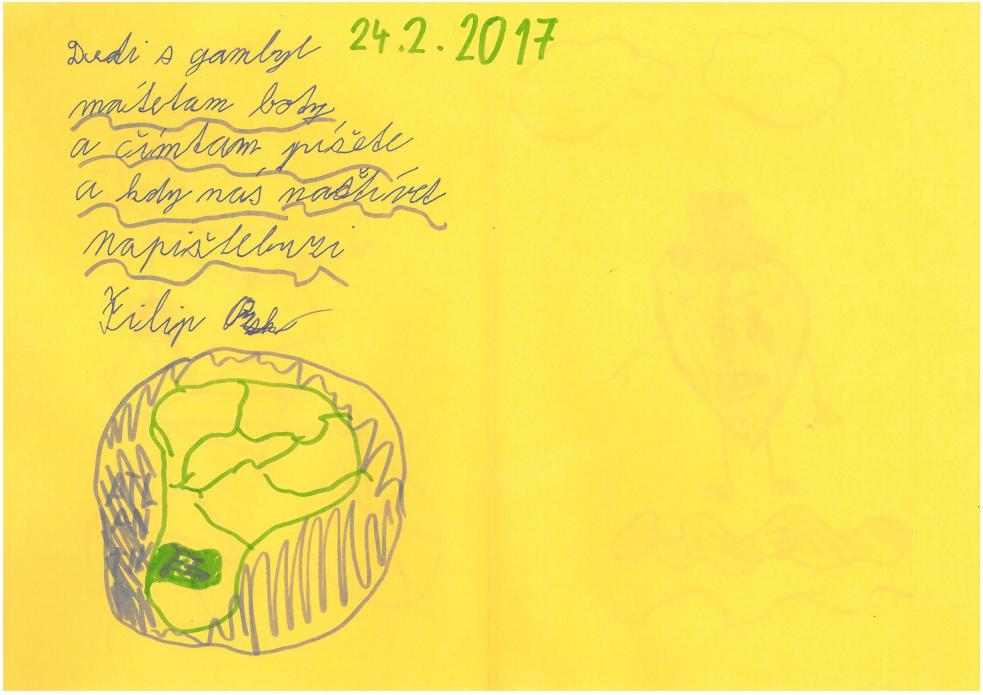 24.2.2017
Dedi s gambyl
mátetam boty
a čímtam píšete
a kdy nás naštívet
napištebrzi
Filip